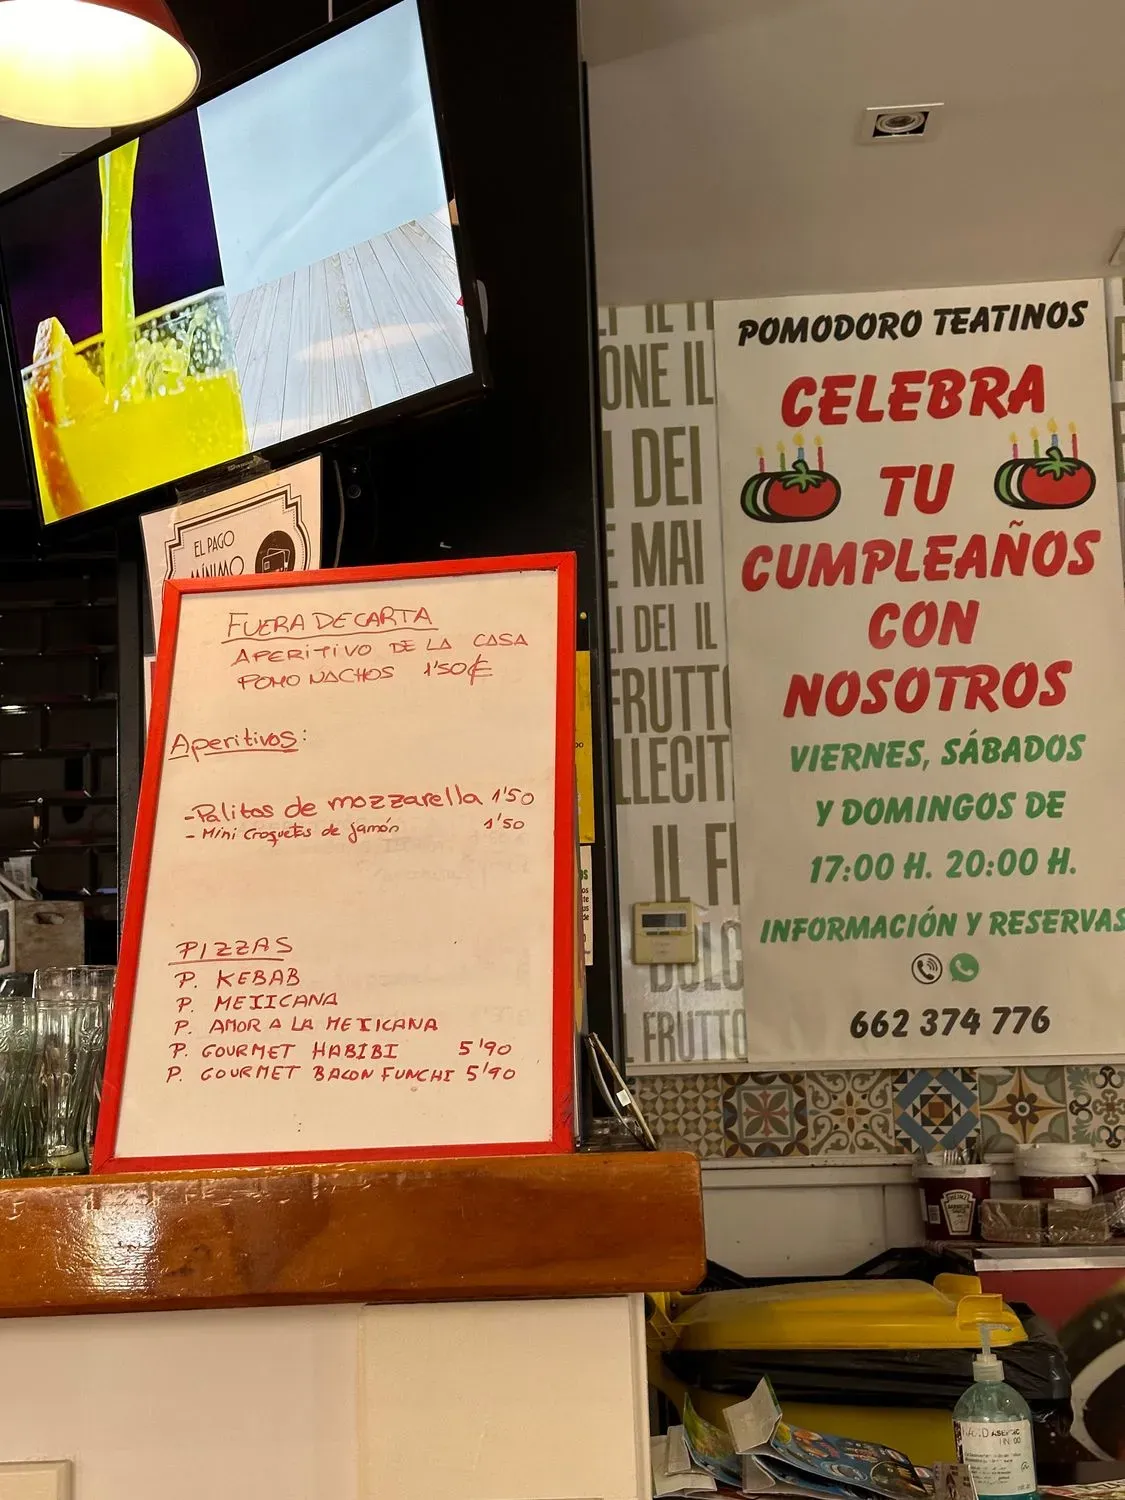 EL PAGO
MÍNIMO
FUERA DE CARTA
APERITIVO DE LA CASA
POMO NACHOS 1'50€
Aperitivos:
-Palitos de mozzarella 1'50
- Mini Croquetes de jamón 1'50
PIZZAS
P. KEBAB
P. MEXICANA
P. AMOR A LA MEXICANA
P. GOURMET HABIBI 5'90
P. GOURMET BACON FUNCHI 5'90
POMODORO TEATINOS
CELEBRA
TU
CUMPLEAÑOS
CON
NOSOTROS
VIERNES, SÁBADOS
Y DOMINGOS DE
17:00 H. 20:00 H.
INFORMACIÓN Y RESERVAS
662 374 776
ONE IL
DEI
MAI
I DEI IL
FRUTTO
LLECIT
IL F
DOLC
IL FRUTTO
HEINZ